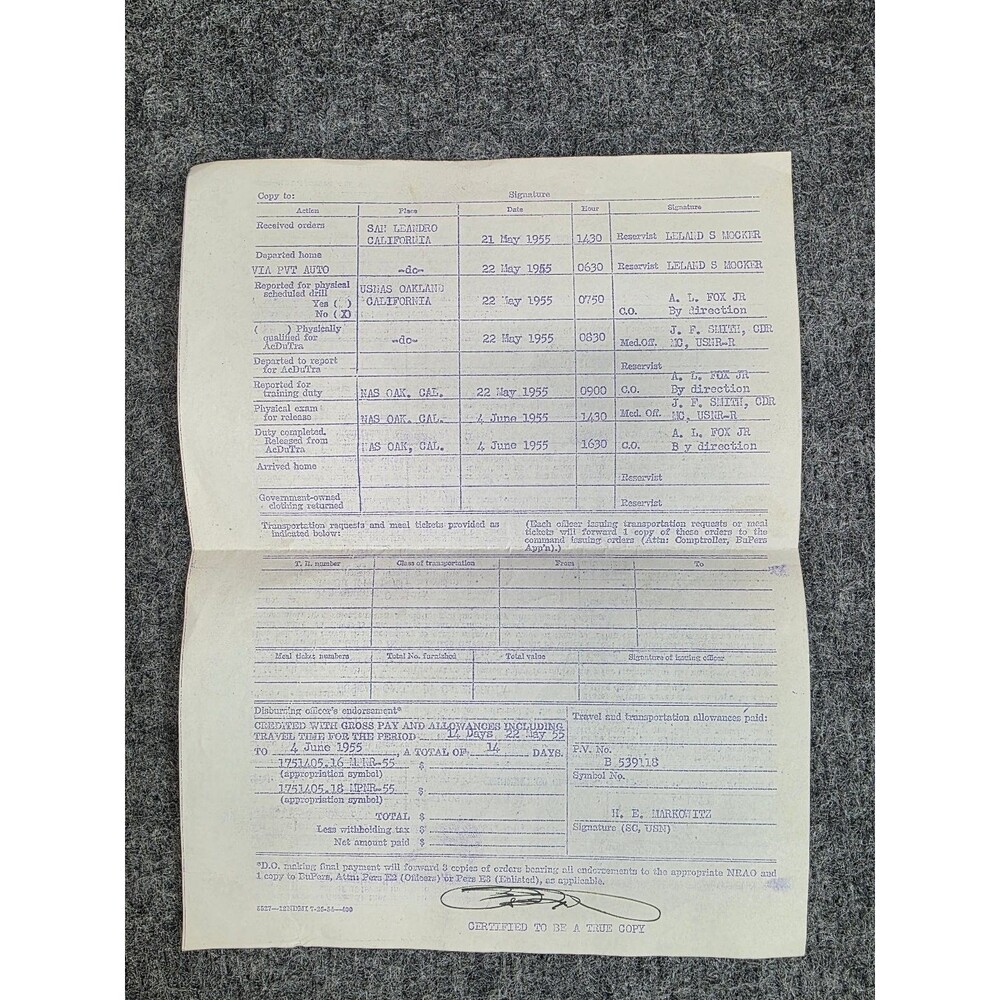 Copy to: Signature
Action Place Date Hour Signature
Received orders SAN LEANDRO
CALIFORNIA 21 May 1955 1430 Reservist LELAND S MOCKER
Departed home
VIA PVT AUTO -do- 22 May 1955 0630 Reservist LELAND S MOCKER
Reported for physical USNAS OAKLAND
scheduled drill CALIFORNIA 22 May 1955 0750 A. L. FOX JR
Yes ( )
No (X) C.O. By direction
( ) Physically J. F. SMITH, CDR
qualified for -do- 22 May 1955 0830
AcDuTra Med.Off. MC, USNR-R
Departed to report
for AcDuTra Reservist
A. L. FOX JR
Reported for
training duty NAS OAK. CAL. 22 May 1955 0900 C.O. By direction
J. F. SMITH, CDR
Physical exam
for release NAS OAK. CAL. 4 June 1955 1430 Med. Off. MC, USNR-R
Duty completed. A. L. FOX JR
Released from
AcDuTra NAS OAK, CAL. 4 June 1955 1630 C.O. B y direction
Arrived home
Reservist
Government-owned
clothing returned Reservist
Transportation requests and meal tickets provided as
indicated below:
(Each officer issuing transportation requests or meal
tickets will forward 1 copy of these orders to the
command issuing orders (Attn: Comptroller, BuPers
App'n).)
T. R. number Class of transportation From To
Meal ticket numbers Total No. furnished Total value Signature of issuing officer
Disbursing officer's endorsement*
CREDITED WITH GROSS PAY AND ALLOWANCES INCLUDING
TRAVEL TIME FOR THE PERIOD 14 Days 22 May 55
TO 4 June 1955, A TOTAL OF 14 DAYS.
1751405.16 MPNR-55 $
(appropriation symbol)
1751405.18 MPNR-55 $
(appropriation symbol)
TOTAL $
Less withholding tax $
Net amount paid $
Travel and transportation allowances paid:
P.V. No.
B 539118
Symbol No.
H. E. MARKOWITZ
Signature (SC, USN)
*D.O. making final payment will forward 3 copies of orders bearing all endorsements to the appropriate NRAO and
1 copy to BuPers, Attn: Pers E2 (Officers) or Pers E3 (Enlisted), as applicable.
CERTIFIED TO BE A TRUE COPY